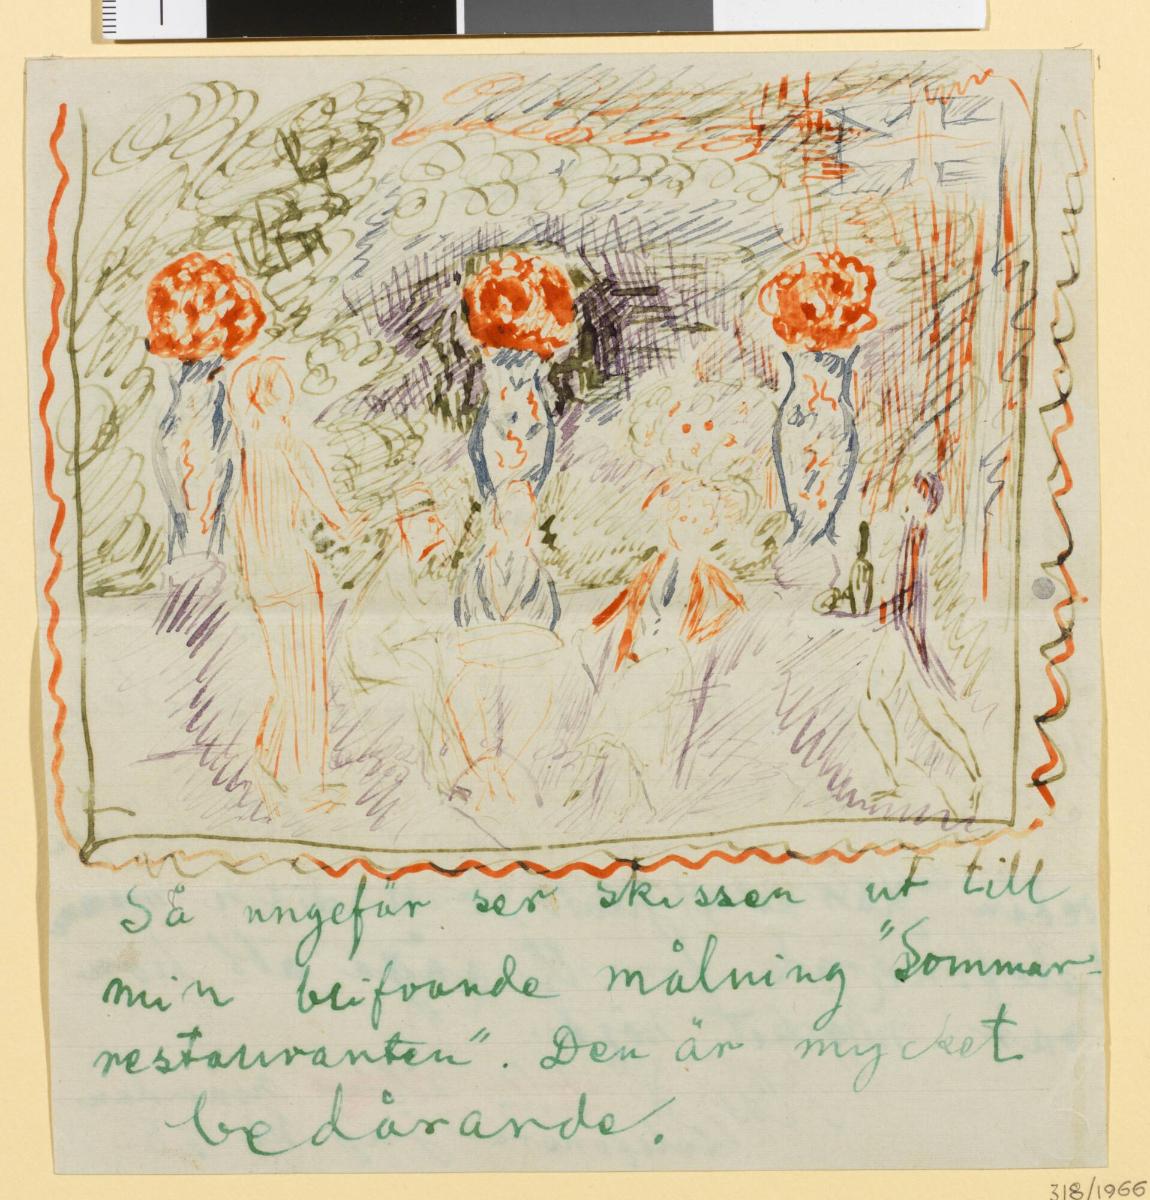 Så ungefär ser skissen ut till
min blifvande målning "Sommar-
restauranten". Den är mycket
bedårande.
318/1966